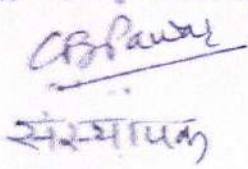 CBPawar
संस्थापक